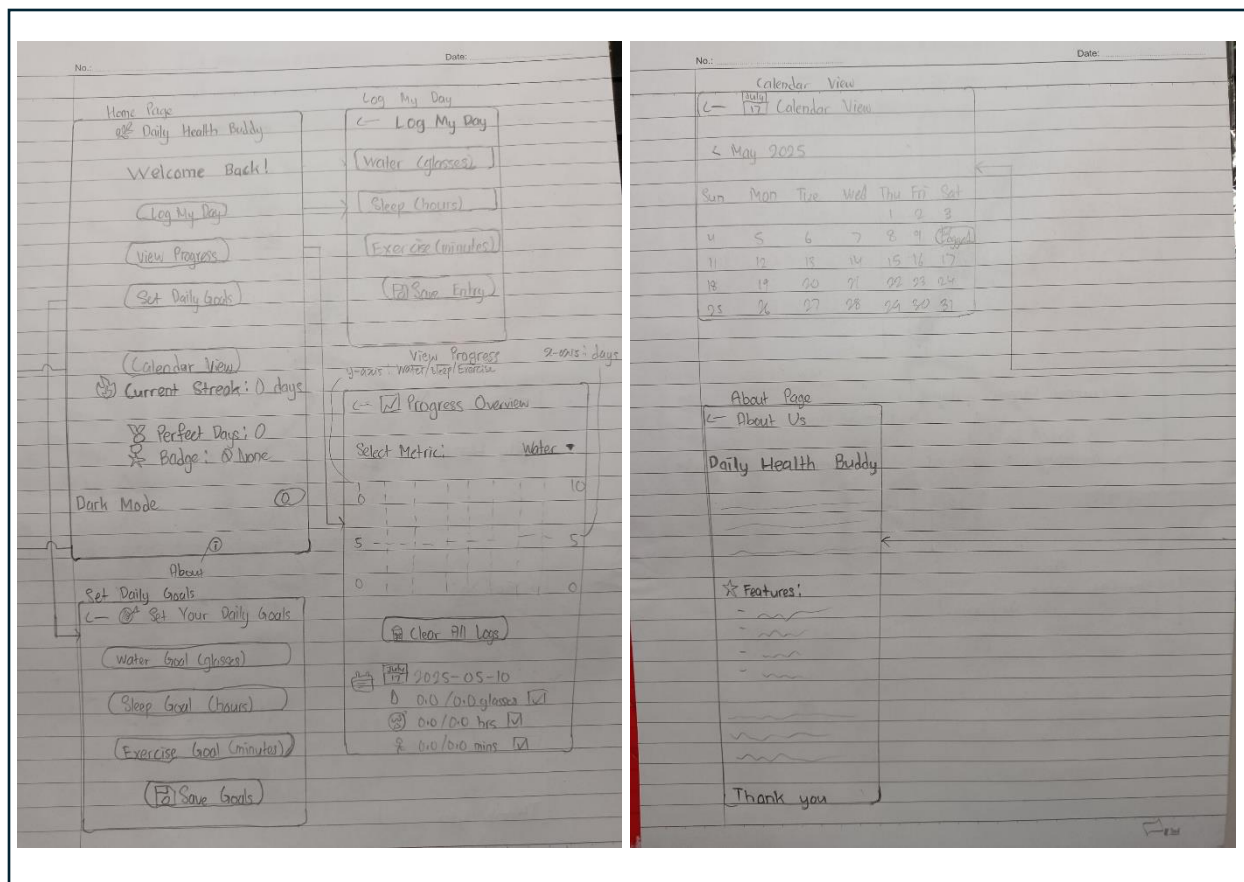 No.:
Date:
Home Page
Daily Health Buddy
Welcome Back!
Log My Day
View Progress
Set Daily Goals
Calendar View
Current Streak: 0 days
Perfect Days: 0
Badge: None
Dark Mode
About
Set Daily Goals
Set Your Daily Goals
Water Goal (glasses)
Sleep Goal (hours)
Exercise Goal (minutes)
Save Goals
Log My Day
Log My Day
Water (glasses)
Sleep (hours)
Exercise (minutes)
Save Entry
View Progress
x-axis: days
y-axis: Water/Sleep/Exercise
Progress Overview
Select Metric: Water
10 10
5 5
0 0
Clear All Logs
July 17 2025-05-10
0.0/0.0 glasses
0.0/0.0 hrs
0.0/0.0 mins
No.:
Date:
Calendar View
July 17 Calendar View
< May 2025
Sun Mon Tue Wed Thu Fri Sat
1 2 3
4 5 6 7 8 9 Logged
11 12 13 14 15 16 17
18 19 20 21 22 23 24
25 26 27 28 29 30 31
About Page
About Us
Daily Health Buddy
Features:
Thank you